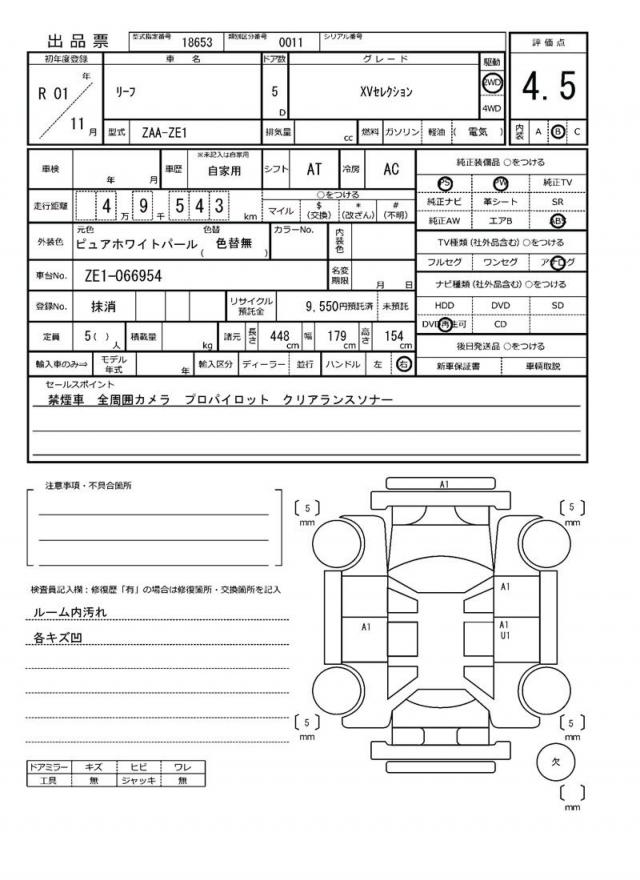 出品票 型式指定番号 18653 類別区分番号 0011 シリアル番号
評価点
4.5
初年度登録 車名 ドア数 グレード 駆動
R 01 年 リーフ 5 D XVセレクション 2WD
4WD
11 月 型式 ZAA-ZE1 排気量 cc 燃料 ガソリン 軽油 ( 電気 ) 内装 A B C
車検 年 月 車歴 ※未記入は自家用 自家用 シフト AT 冷房 AC
走行距離 4 万 9 千 5 4 3 km ○をつける
マイル $(交換) *(改ざん) #(不明)
外装色 元色 ピュアホワイトパール 色替 ( 色替無 ) カラーNo. 内装色
車台No. ZE1-066954 名変期限 月 日
登録No. 抹消 リサイクル預託金 9,550円預託済 未預託
定員 5 ( ) 人 積載量 kg 諸元 長さ 448 cm 幅 179 cm 高さ 154 cm
輸入車のみ⇒ モデル年式 年 輸入区分 ディーラー 並行 ハンドル 左 右
純正装備品 ○をつける
PS PW 純正TV
純正ナビ 革シート SR
純正AW エアB ABS
TV種類 (社外品含む) ○をつける
フルセグ ワンセグ アナログ
ナビ種類 (社外品含む) ○をつける
HDD DVD SD
DVD再生可 CD
後日発送品 ○をつける
新車保証書 車輌取説
セールスポイント
禁煙車 全周囲カメラ プロパイロット クリアランスソナー
注意事項・不具合箇所
検査員記入欄:修復歴「有」の場合は修復箇所・交換箇所を記入
ルーム内汚れ
各キズ凹
ドアミラー キズ ヒビ ワレ
工具 無 ジャッキ 無
A1
[ 5 ] mm
[ 5 ] mm
A1
A1
A1
U1
[ 5 ] mm
[ 5 ] mm
欠
[ ] mm